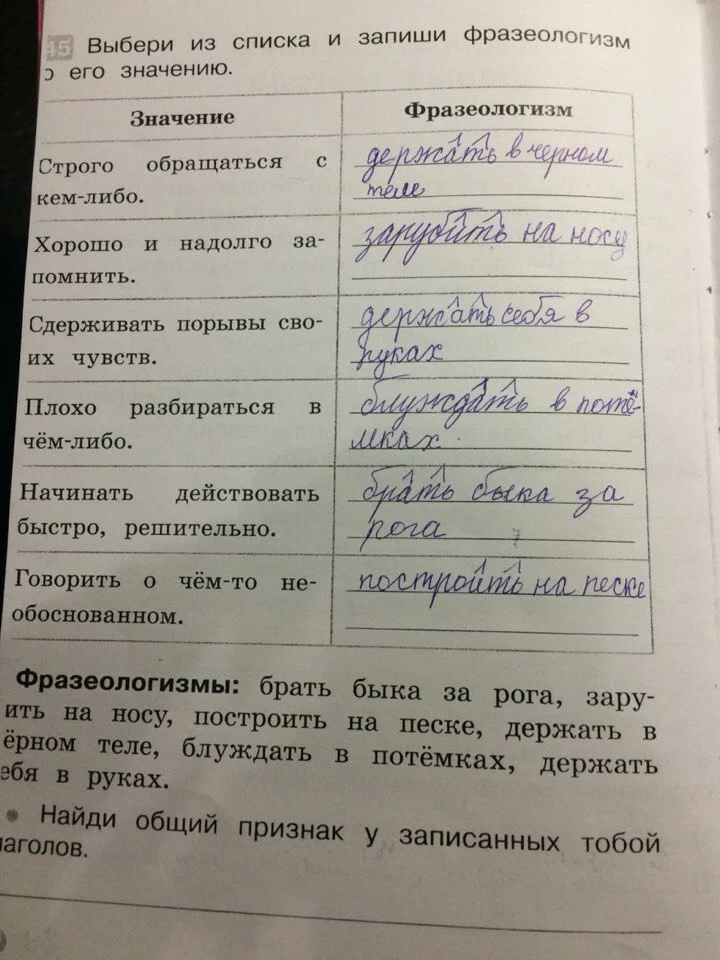 45 Выбери из списка и запиши фразеологизм
его значению.
Значение
Фразеологизм
Строго обращаться с
кем-либо.
держать в черном
теле
Хорошо и надолго за-
помнить.
зарубить на носу
Сдерживать порывы сво-
их чувств.
держать себя в
руках
Плохо разбираться в
чём-либо.
блуждать в потё-
мках
Начинать действовать
быстро, решительно.
брать быка за
рога
Говорить о чём-то не-
обоснованном.
построить на песке
Фразеологизмы: брать быка за рога, зару-
ить на носу, построить на песке, держать в
ёрном теле, блуждать в потёмках, держать
ебя в руках.
Найди общий признак у записанных тобой
лаголов.